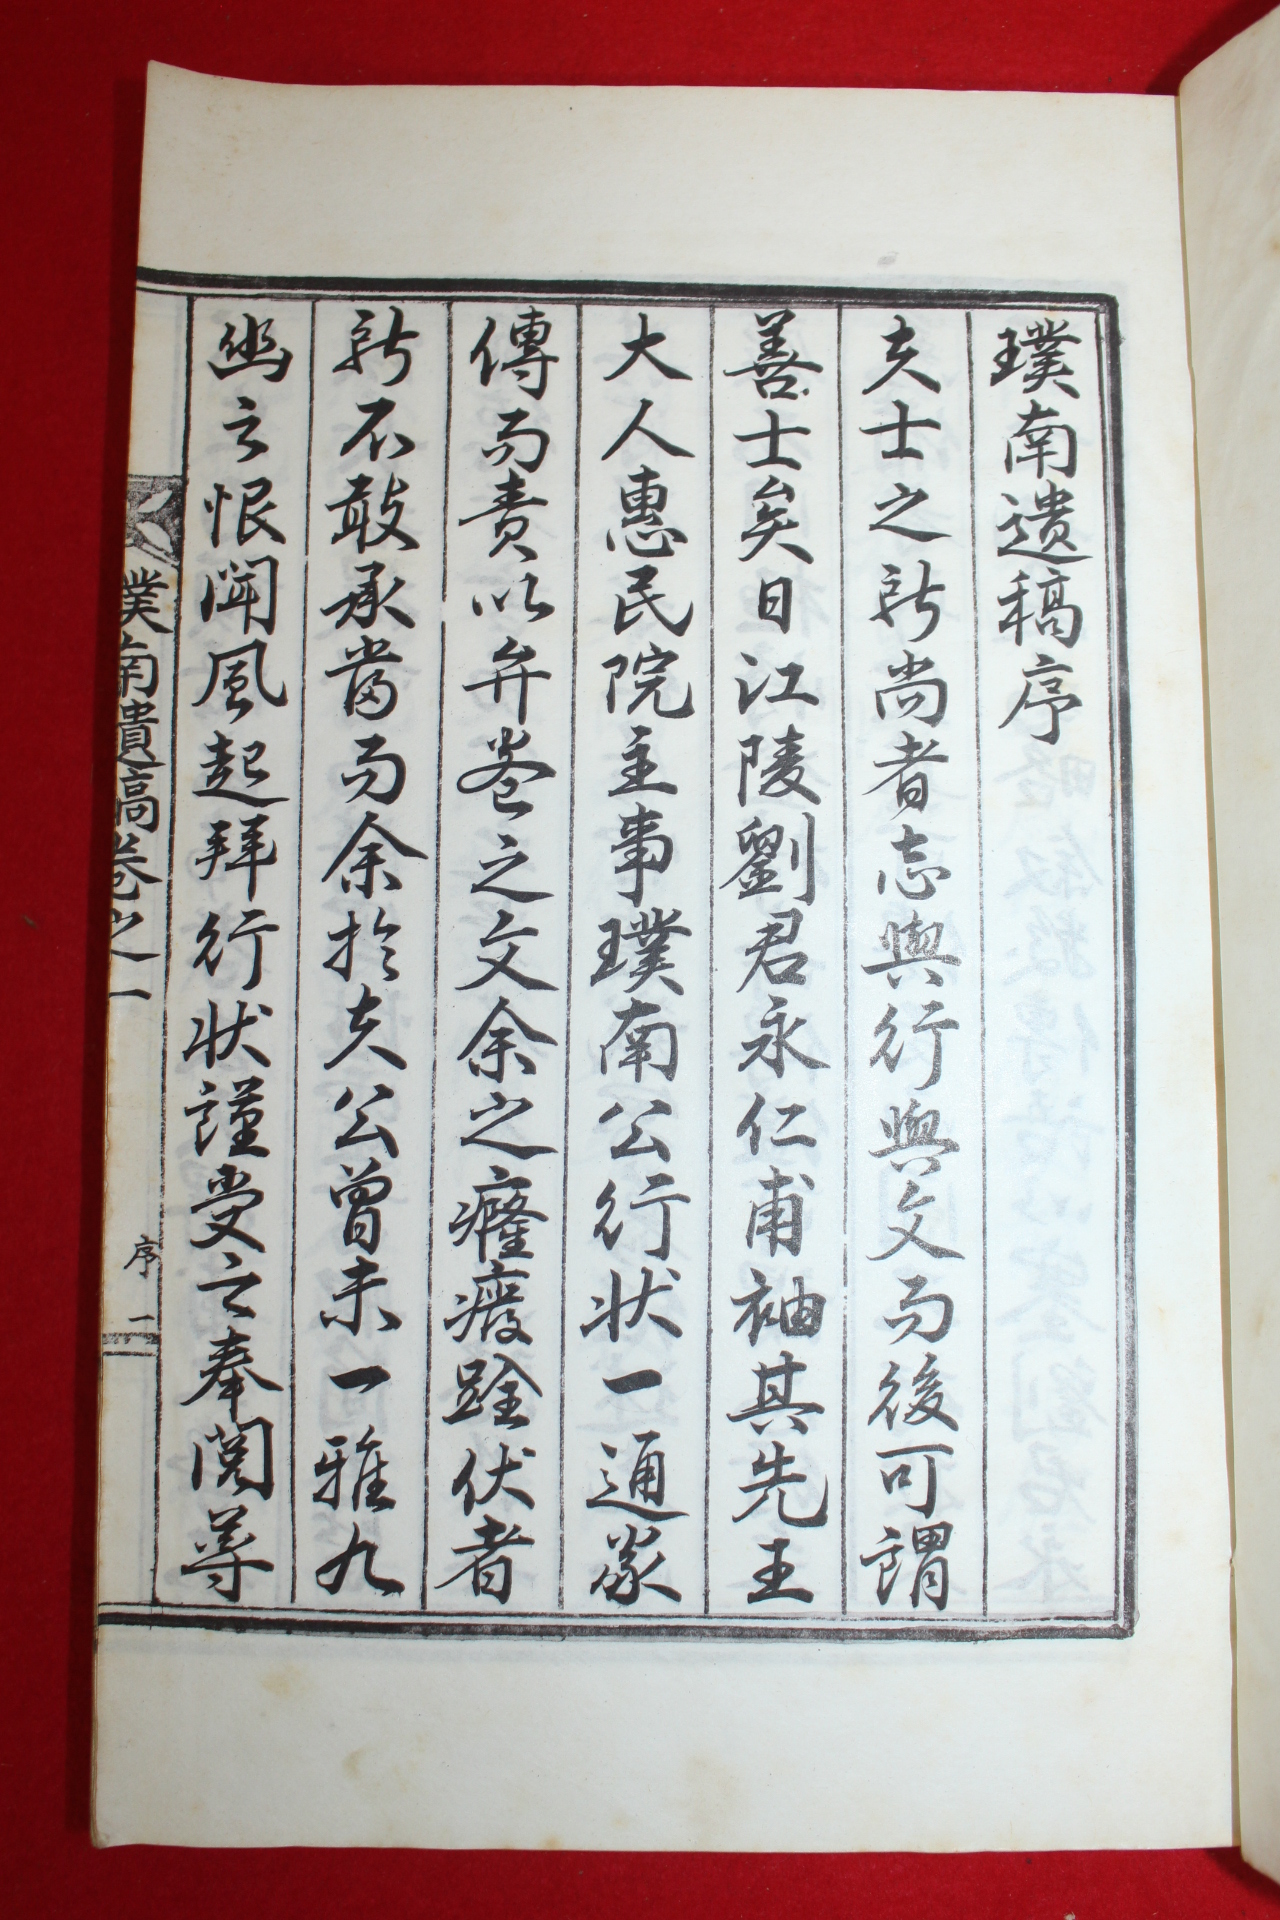 璞南遺稿序
夫士之所尚者志與行與文而後可謂
善士矣日江陵劉君永仁甫袖其先王
大人惠民院主事璞南公行狀一通家
傳而責以弁卷之文余之癃癈跧伏者
所不敢承當而余於夫公曾未一雅九
幽之恨聞風起拜行狀謹受之奉閱尊
璞南遺稿卷之一
序
一